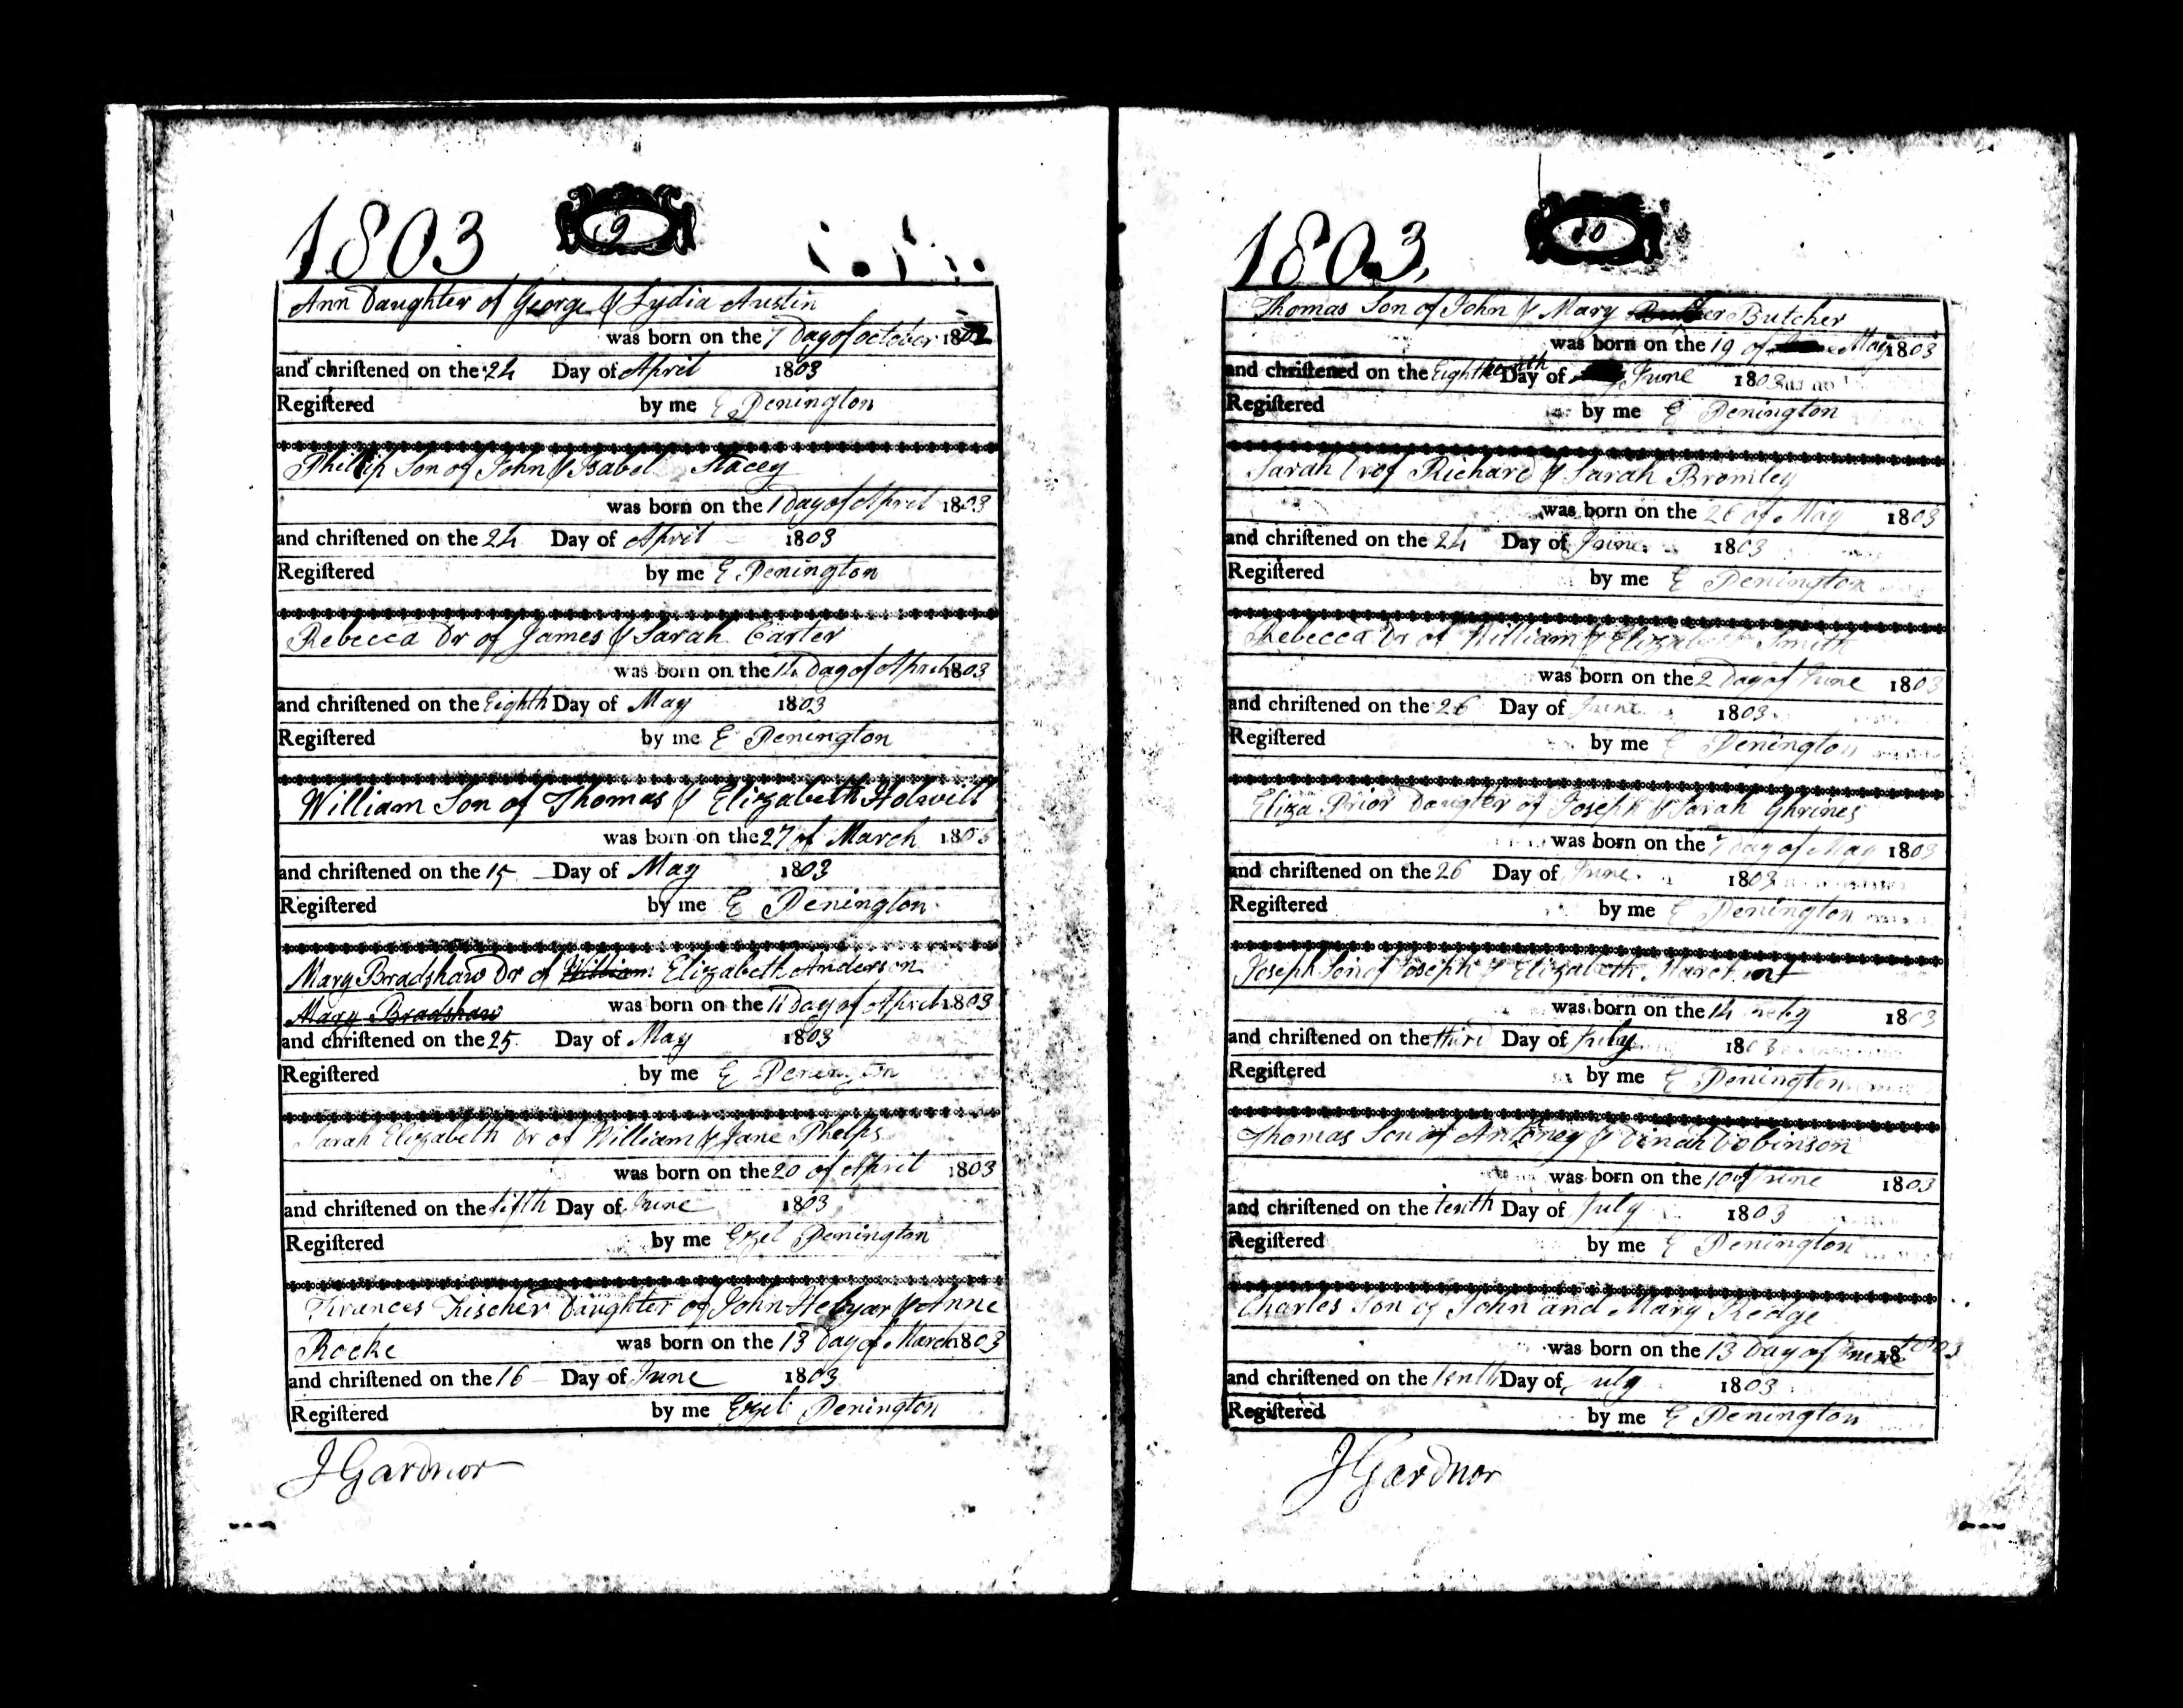 1803
9
Ann Daughter of George & Lydia Austin
was born on the 7 Day of october 1802
and chriſtened on the 24 Day of April 1803
Regiſtered by me E Denington
Phillip Son of John & Isabel Stacey
was born on the 1 Day of April 1803
and chriſtened on the 24 Day of April 1803
Regiſtered by me E Denington
Rebecca Dr of James & Sarah Carter
was born on the 14 Day of April 1803
and chriſtened on the Eighth Day of May 1803
Regiſtered by me E Denington
William Son of Thomas & Elizabeth Holwill
was born on the 27 of March 1803
and chriſtened on the 15 Day of May 1803
Regiſtered by me E Denington
Mary Bradshaw Dr of William Elizabeth Anderson
Mary Bradshaw was born on the 11 Day of April 1803
and chriſtened on the 25 Day of May 1803
Regiſtered by me E Denington
Sarah Elizabeth Dr of William & Jane Phelps
was born on the 20 of April 1803
and chriſtened on the fifth Day of June 1803
Regiſtered by me Ezel Denington
Frances Fischer Daughter of John Helyar & Anne
Rocke was born on the 13 Day of March 1803
and chriſtened on the 16 Day of June 1803
Regiſtered by me Ezel Denington
J Gardnor
1803.
10
Thomas Son of John & Mary Butcher
was born on the 19 of May 1803
and chriſtened on the Day of June 1803
Regiſtered by me E Denington
Sarah Dr of Richard & Sarah Bromley
was born on the 26 of May 1803
and chriſtened on the 24 Day of June 1803
Regiſtered by me E Denington
Rebecca Dr of William & Elizabeth Smith
was born on the 2 Day of June 1803
and chriſtened on the 26 Day of June 1803
Regiſtered by me E Denington
Eliza Prior Daugter of Joseph & Sarah Ghrines
was born on the 7 Day of May 1803
and chriſtened on the 26 Day of June 1803
Regiſtered by me E Denington
Joseph Son of Joseph & Elizabeth
was born on the 14 1803
and chriſtened on the third Day of July 1803
Regiſtered by me E Denington
Thomas Son of Antoney & Dinah Dobinson
was born on the 10 of June 1803
and chriſtened on the tenth Day of July 1803
Regiſtered by me E Denington
Charles Son of John and Mary Redge
was born on the 13 Day of June 1803
and chriſtened on the tenth Day of July 1803
Regiſtered by me E Denington
J Gardnor